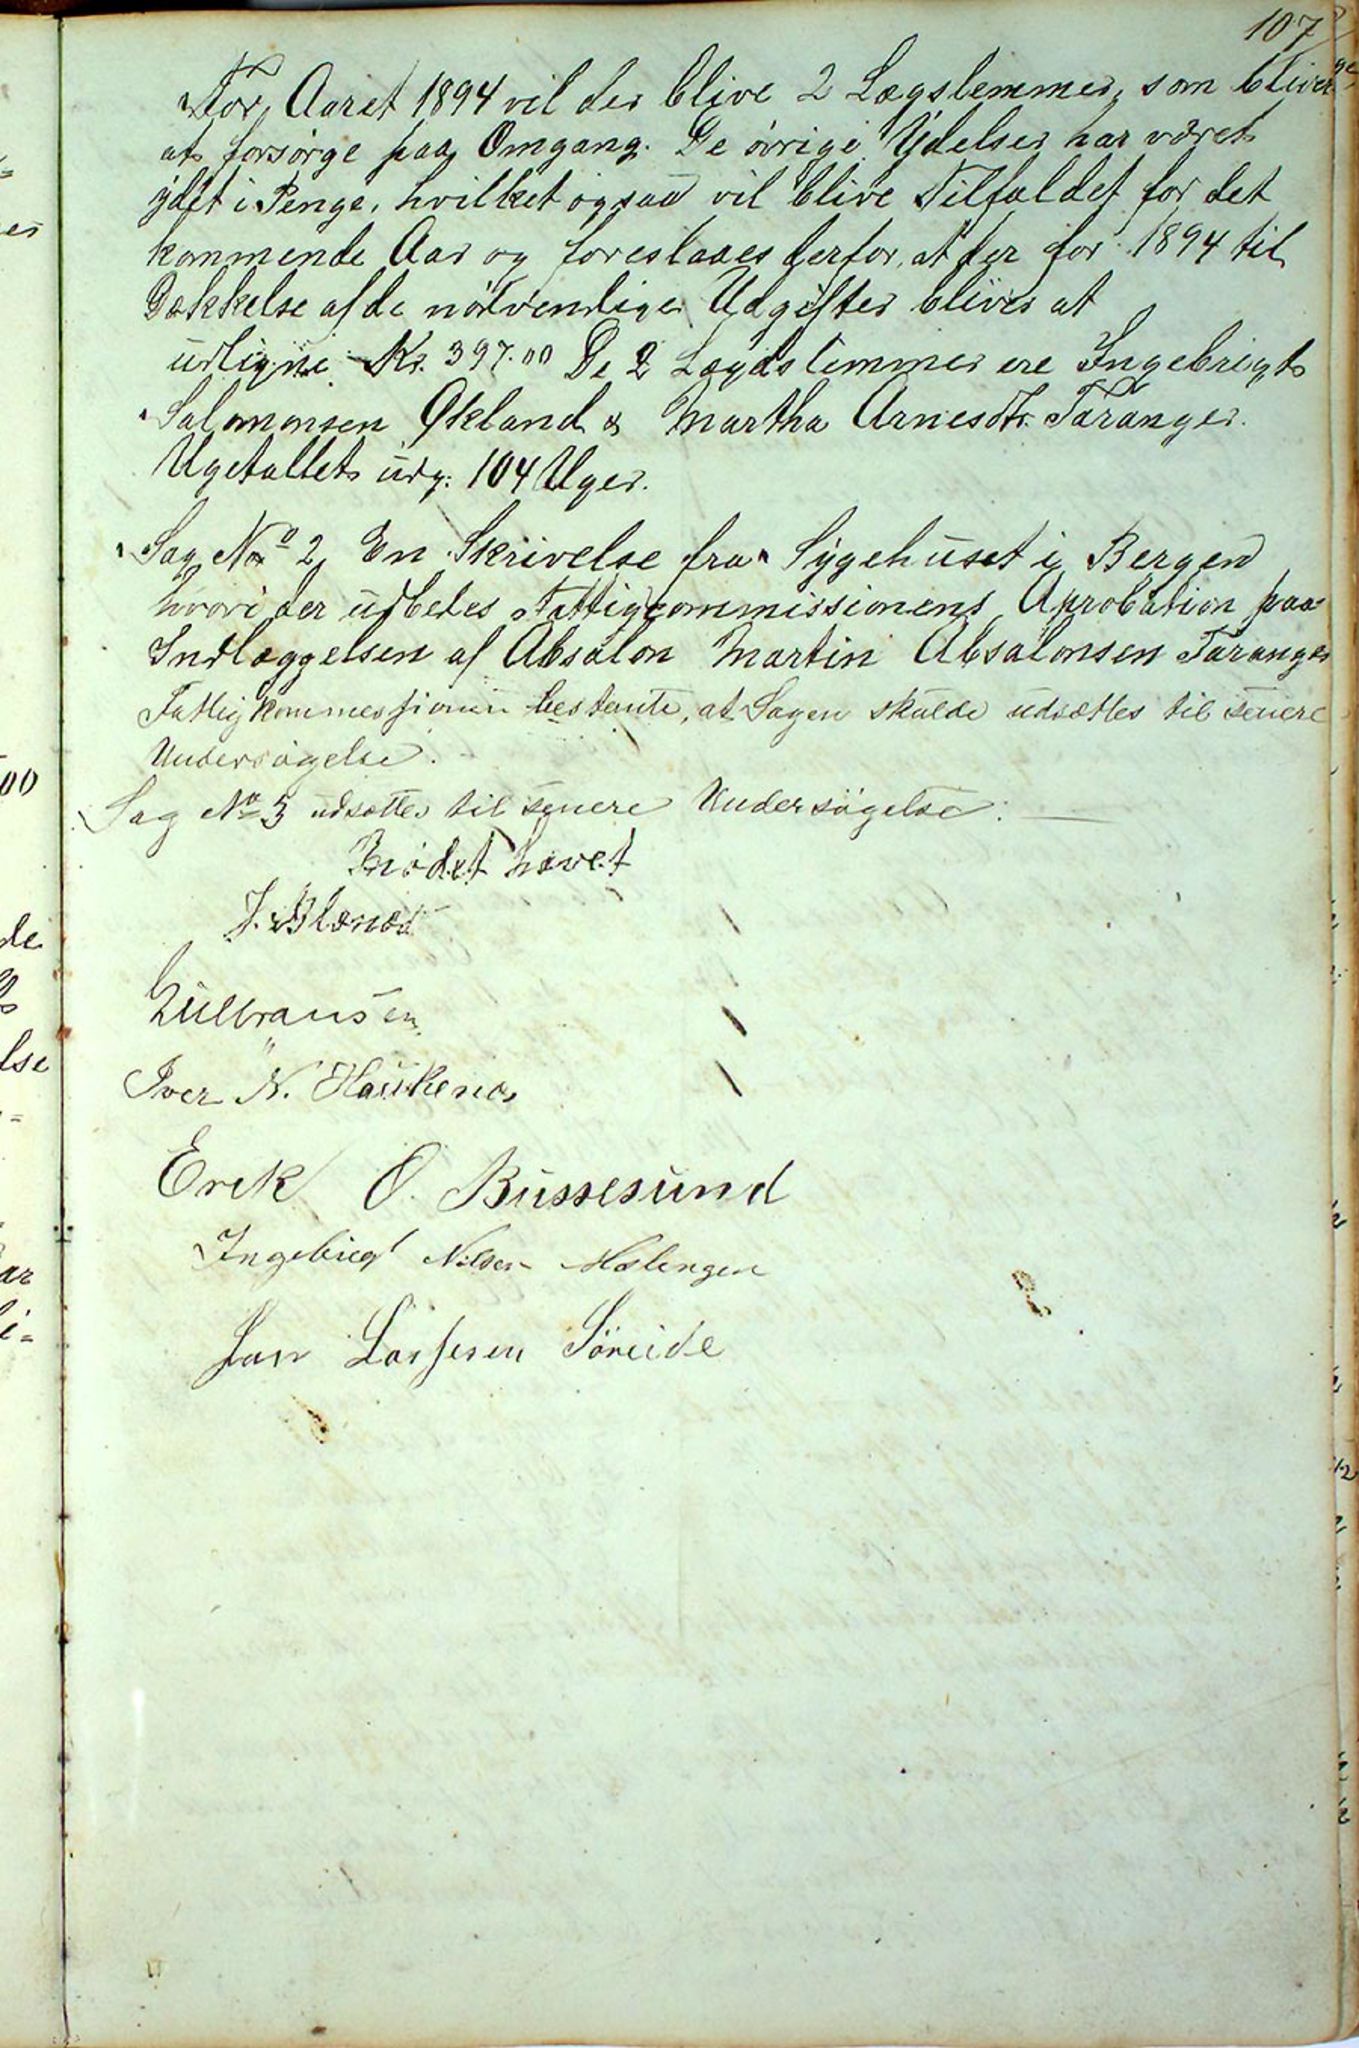 107
For Aaret 1894 vil der blive 2 Lægslemmer, som bliver
at forsørge paa Omgang. De øvrige Ydelser har været
ydet i Penge, hvilket ogsaa vil blive Tilfældet for det
kommende Aar og foreslaaes derfor, at der for 1894 til
Dækkelse af de nödvendige Udgifter bliver at
udligne Kr. 397.00 De 2 Lægdslemmer ere Ingebrigt
Salomonsen Økland & Martha Arnesdtr. Taranger.
Ugetallet udg. 104 Uger.
Sag No 2, En Skrivelse fra Sygehuset i Bergen
hvori der udbedes Fattigcommissionens Aprobation paa
Indlæggelsen af Absalon Martin Absalonsen Taranger
Fattigkommessionen bestemte, at Sagen skulde udsættes til senere
Undersøgelse.
Sag No 3 udsættes til senere Undersögelse.
Mödet hævet
Gulbransen
Iver N. Haukenæs
Erik O. Bussesund
Ingebrigt Nilsen
Jan Larssen Söreide
00
de
lse
ar